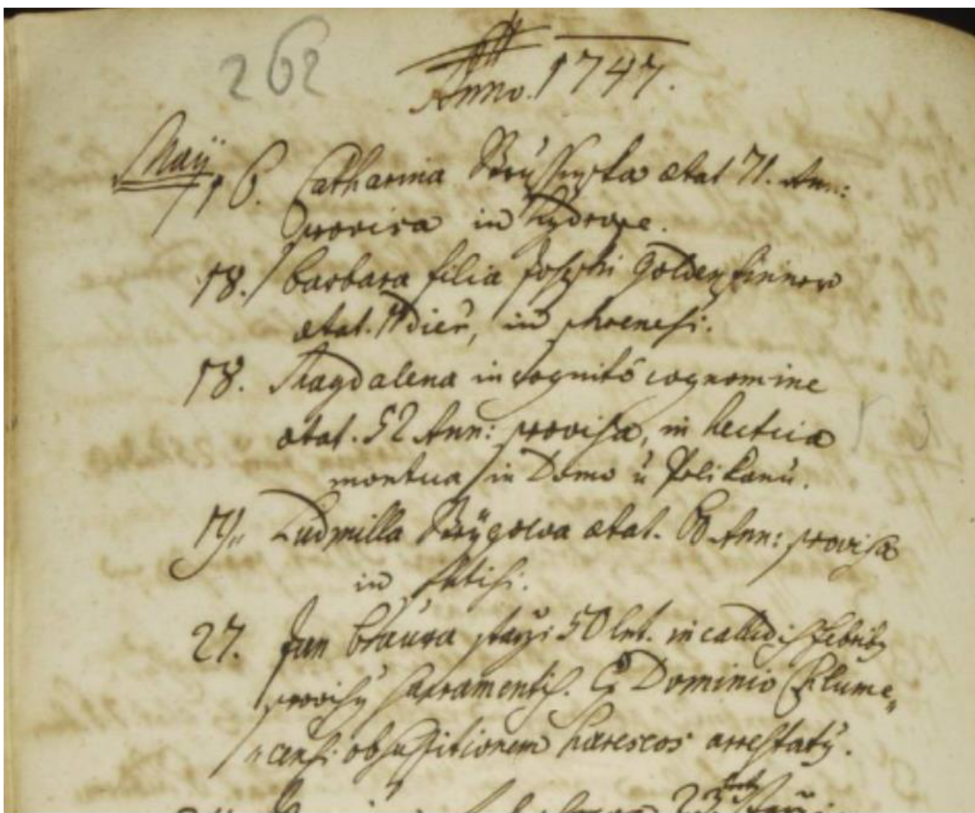 262
Anno. 1747.
Maÿ 16. Catharina ætat 71. Ann:
provisa in Hydrope.
18. Barbara filia Josephi
ætat. 11 dier, in phrenesi.
18. Magdalena incognitô cognomine
ætat. 52 Ann: provisa, in hectica
mortua in Domo u Pelikanu.
19. Ludmilla ætat. 60 Ann: provisa
in phtisi.
27. Jan starzi 50 let. in callid: febrib9
provisus Sacramentis. Ex Dominio Chlume,,
,,censi ob suspitionem hæreseos arrestatus.